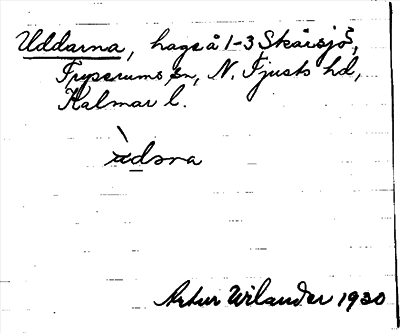 Uddarna, hage å 1-3 Skärsjö,
Tryserums sn, N. Tjusts hd,
Kalmar l.
ùdɘrna
Artur Wilander 1930